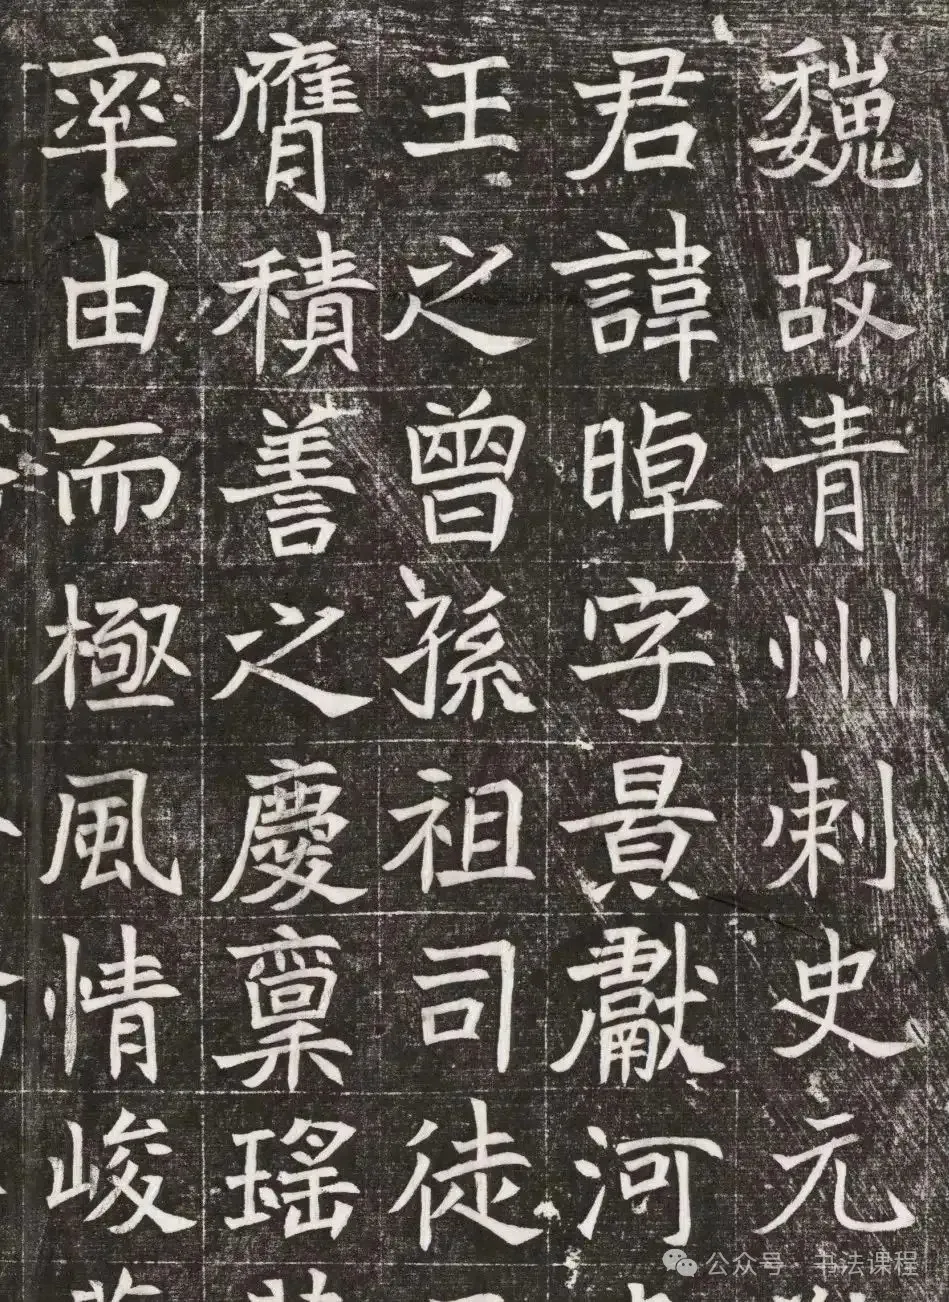 魏故青州刺史元
君諱晫字景獻河
王之曾孫祖司徒
膺積善之慶稟瑤
率由而極風情峻
公众号·书法课程